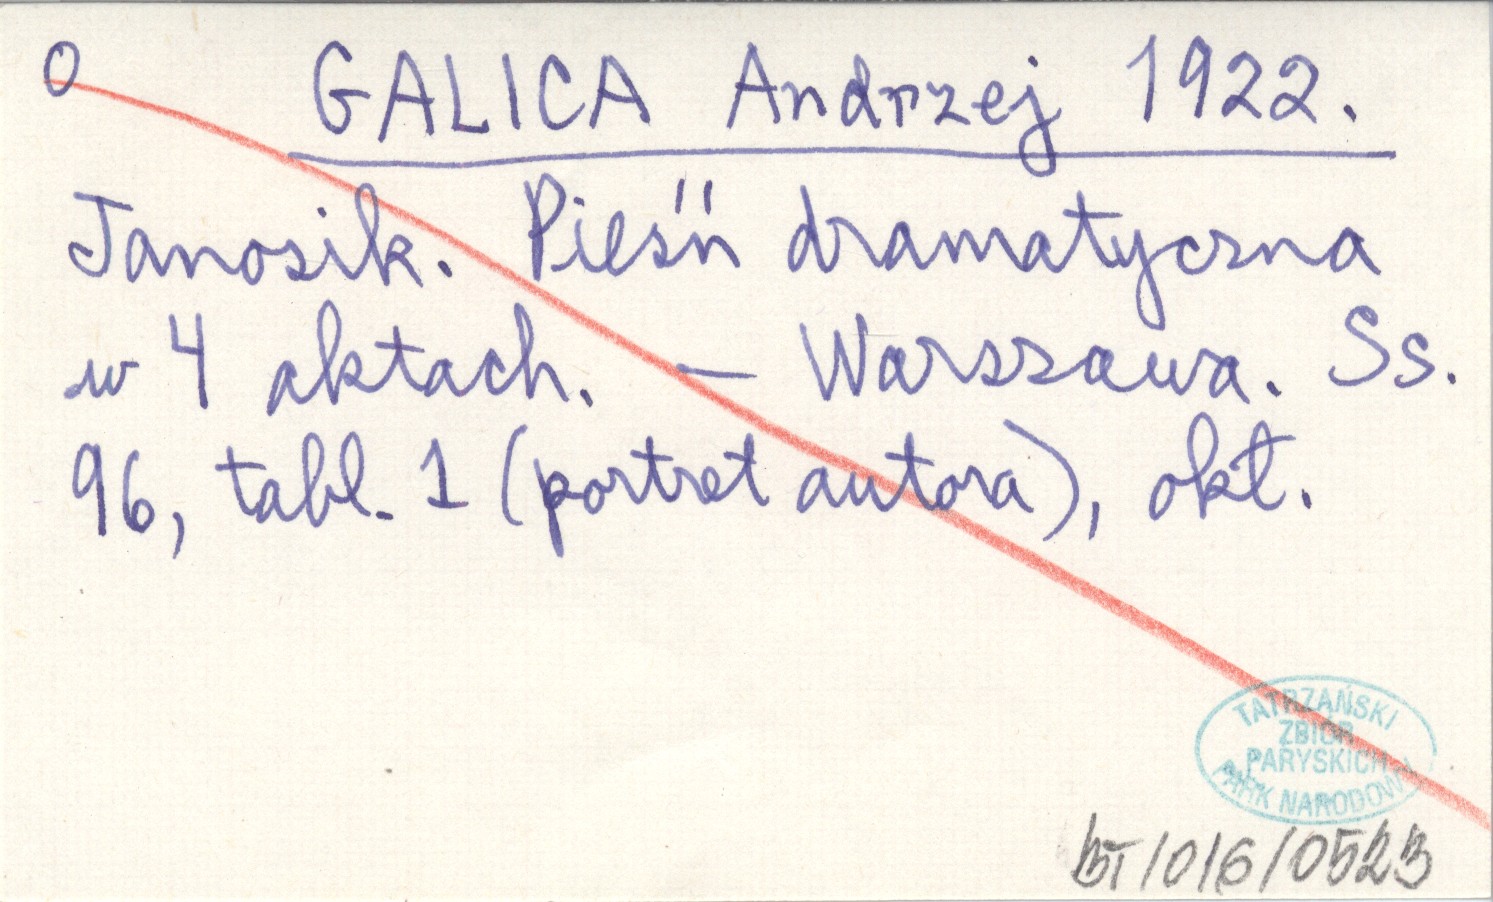 O GALICA Andrzej 1922.
Janosik. Pieśń dramatyczna
w 4 aktach. — Warszawa. Ss.
96, tabl. 1 (portret autora), okł.
TATRZAŃSKI
ZBIÓR
PARYSKICH
PARK NARODOWY
BT/016/0523